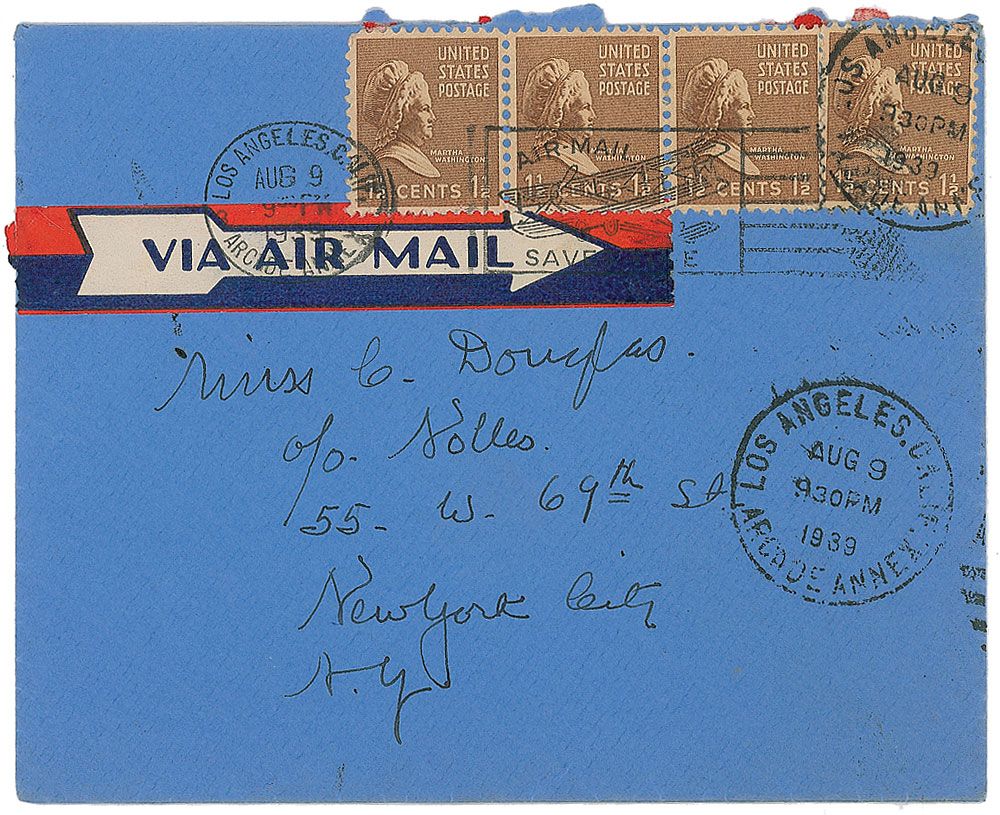 UNITED STATES POSTAGE
MARTHA WASHINGTON
CENTS 1½
UNITED STATES POSTAGE
MARTHA WASHINGTON
1½ CENTS 1½
UNITED STATES POSTAGE
MARTHA WASHINGTON
CENTS 1½
UNITED STATES POSTAGE
MARTHA WASHINGTON
CENTS 1½
LOS ANGELES, CALIF.
AUG 9
1939
ARCADE ANNEX
AIR-MAIL
SAVES
LOS ANGELES
AUG 9
930PM
1939
ARCADE ANNEX
VIA AIR MAIL
Miss C. Douglas.
c/o. Nolles.
55- W. 69th St.
New York City
N.Y
LOS ANGELES, CALIF.
AUG 9
930PM
1939
ARCADE ANNEX